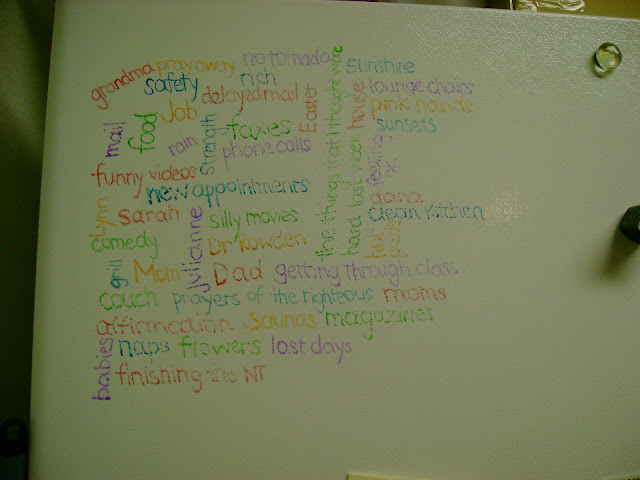 grandma pray away no tornado sunshine
safety rich lounge chairs
delayed mail Easter house pink hands
mail food Job Strength faxes sunsets
rain phone calls
the things that I thought were hard last week
feeling ok
funny videos
new appointments
dana
Lynn Sarah julianne silly movies clean kitchen
comedy Dr Kowden her
grill Mom Dad getting through class
couch prayers of the righteous moms
affirmation saunas magazines
babies naps flowers last days
finishing the NT